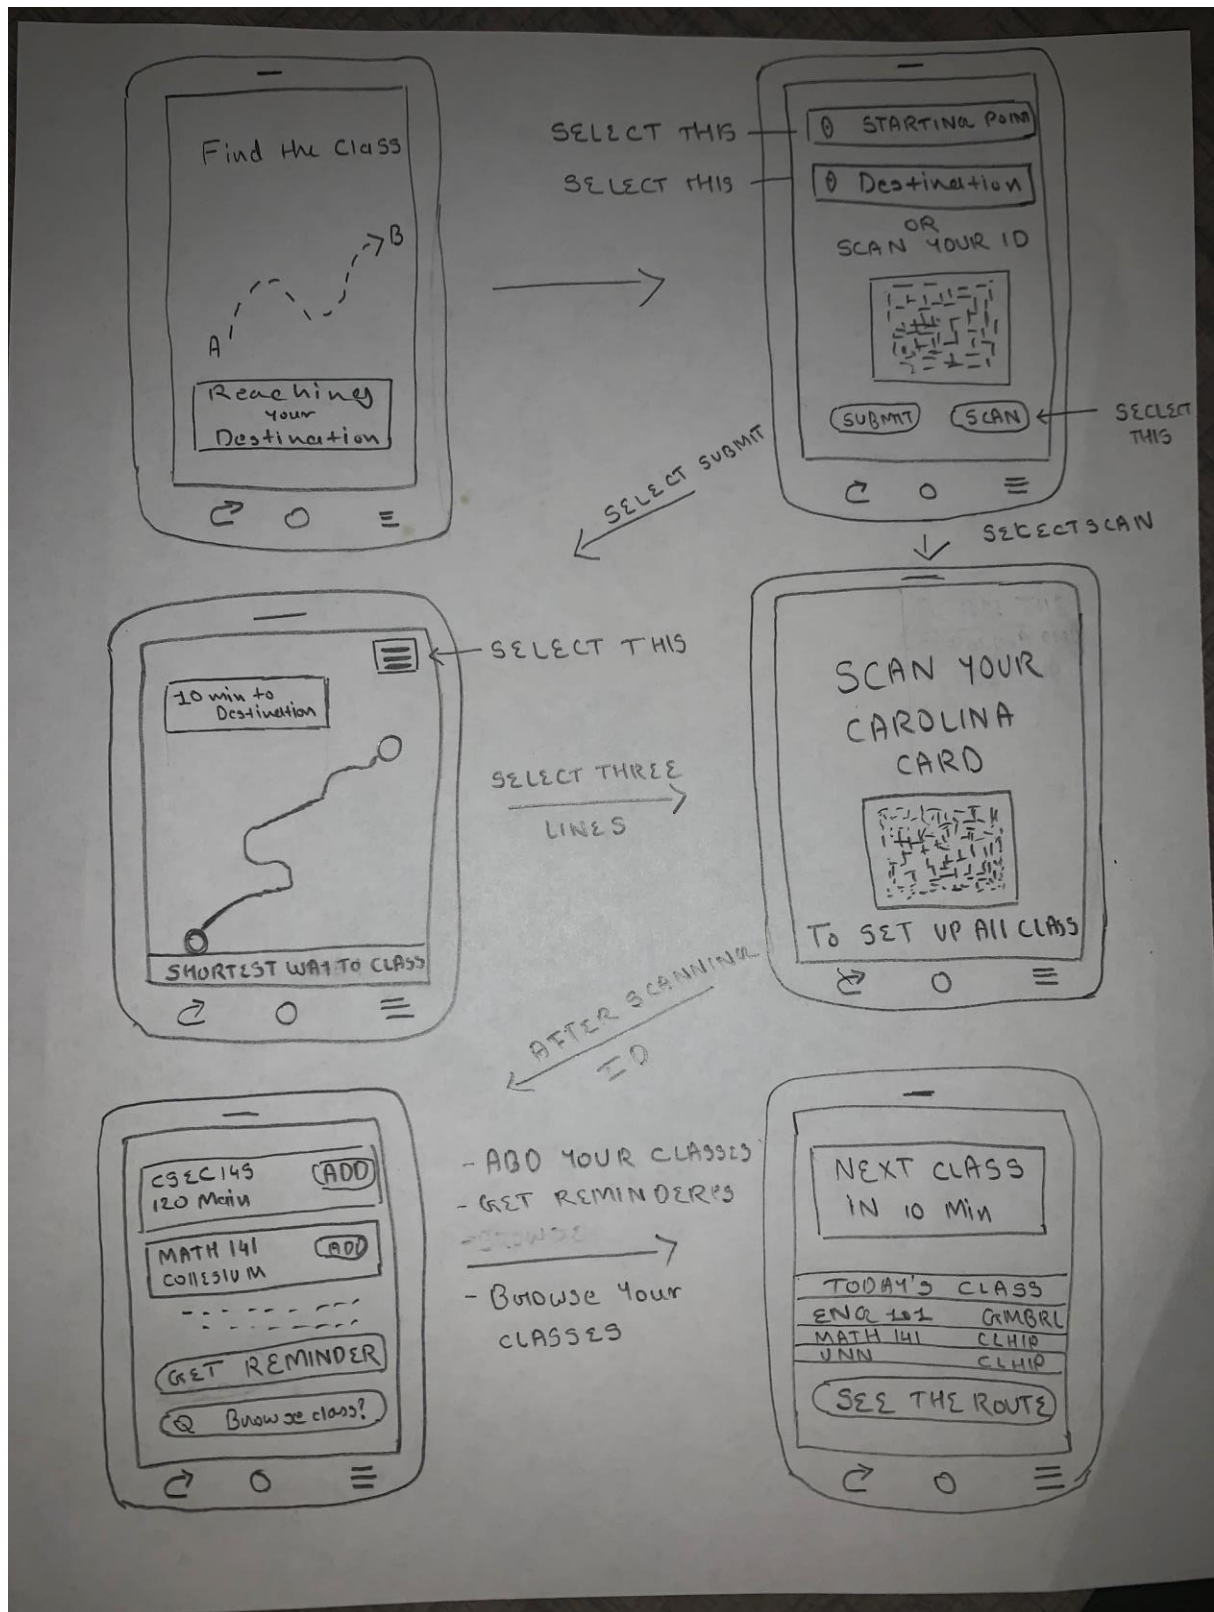 Find the Class
B
A
Reaching
your
Destination
SELECT THIS
STARTING Point
SELECT THIS
Destination
OR
SCAN YOUR ID
SUBMIT
SCAN
SECLECT
THIS
SELECT SUBMIT
SELECT SCAN
SELECT THIS
10 min to
Destination
SHORTEST WAY TO CLASS
SELECT THREE
LINES
SCAN YOUR
CAROLINA
CARD
TO SET UP All CLASS
AFTER SCANNING
ID
120 Main
ADD
MATH 141
ADD
COllESIUM
GET REMINDER
Browse class?
- ADD YOUR CLASSES
- GET
- Browse Your
CLASSES
NEXT CLASS
IN 10 Min
TODAY'S CLASS
ENG 101
MATH 141 CLHIP
CLHIP
SEE THE ROUTE